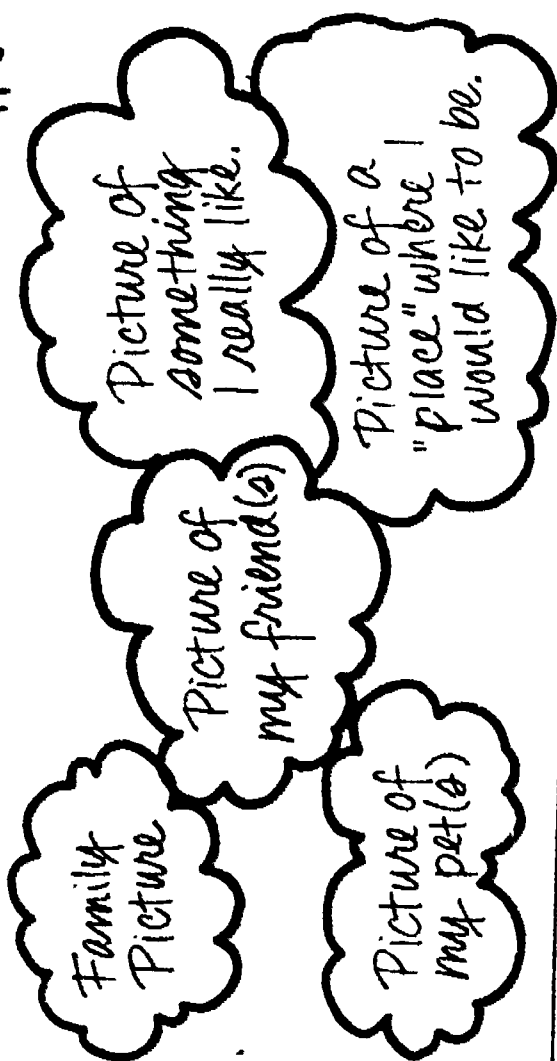 Family
Picture
Picture of
my pet(s)
Picture of
my friend(s)
Picture of
something
I really like.
Picture of a
"place" where I
would like to be.